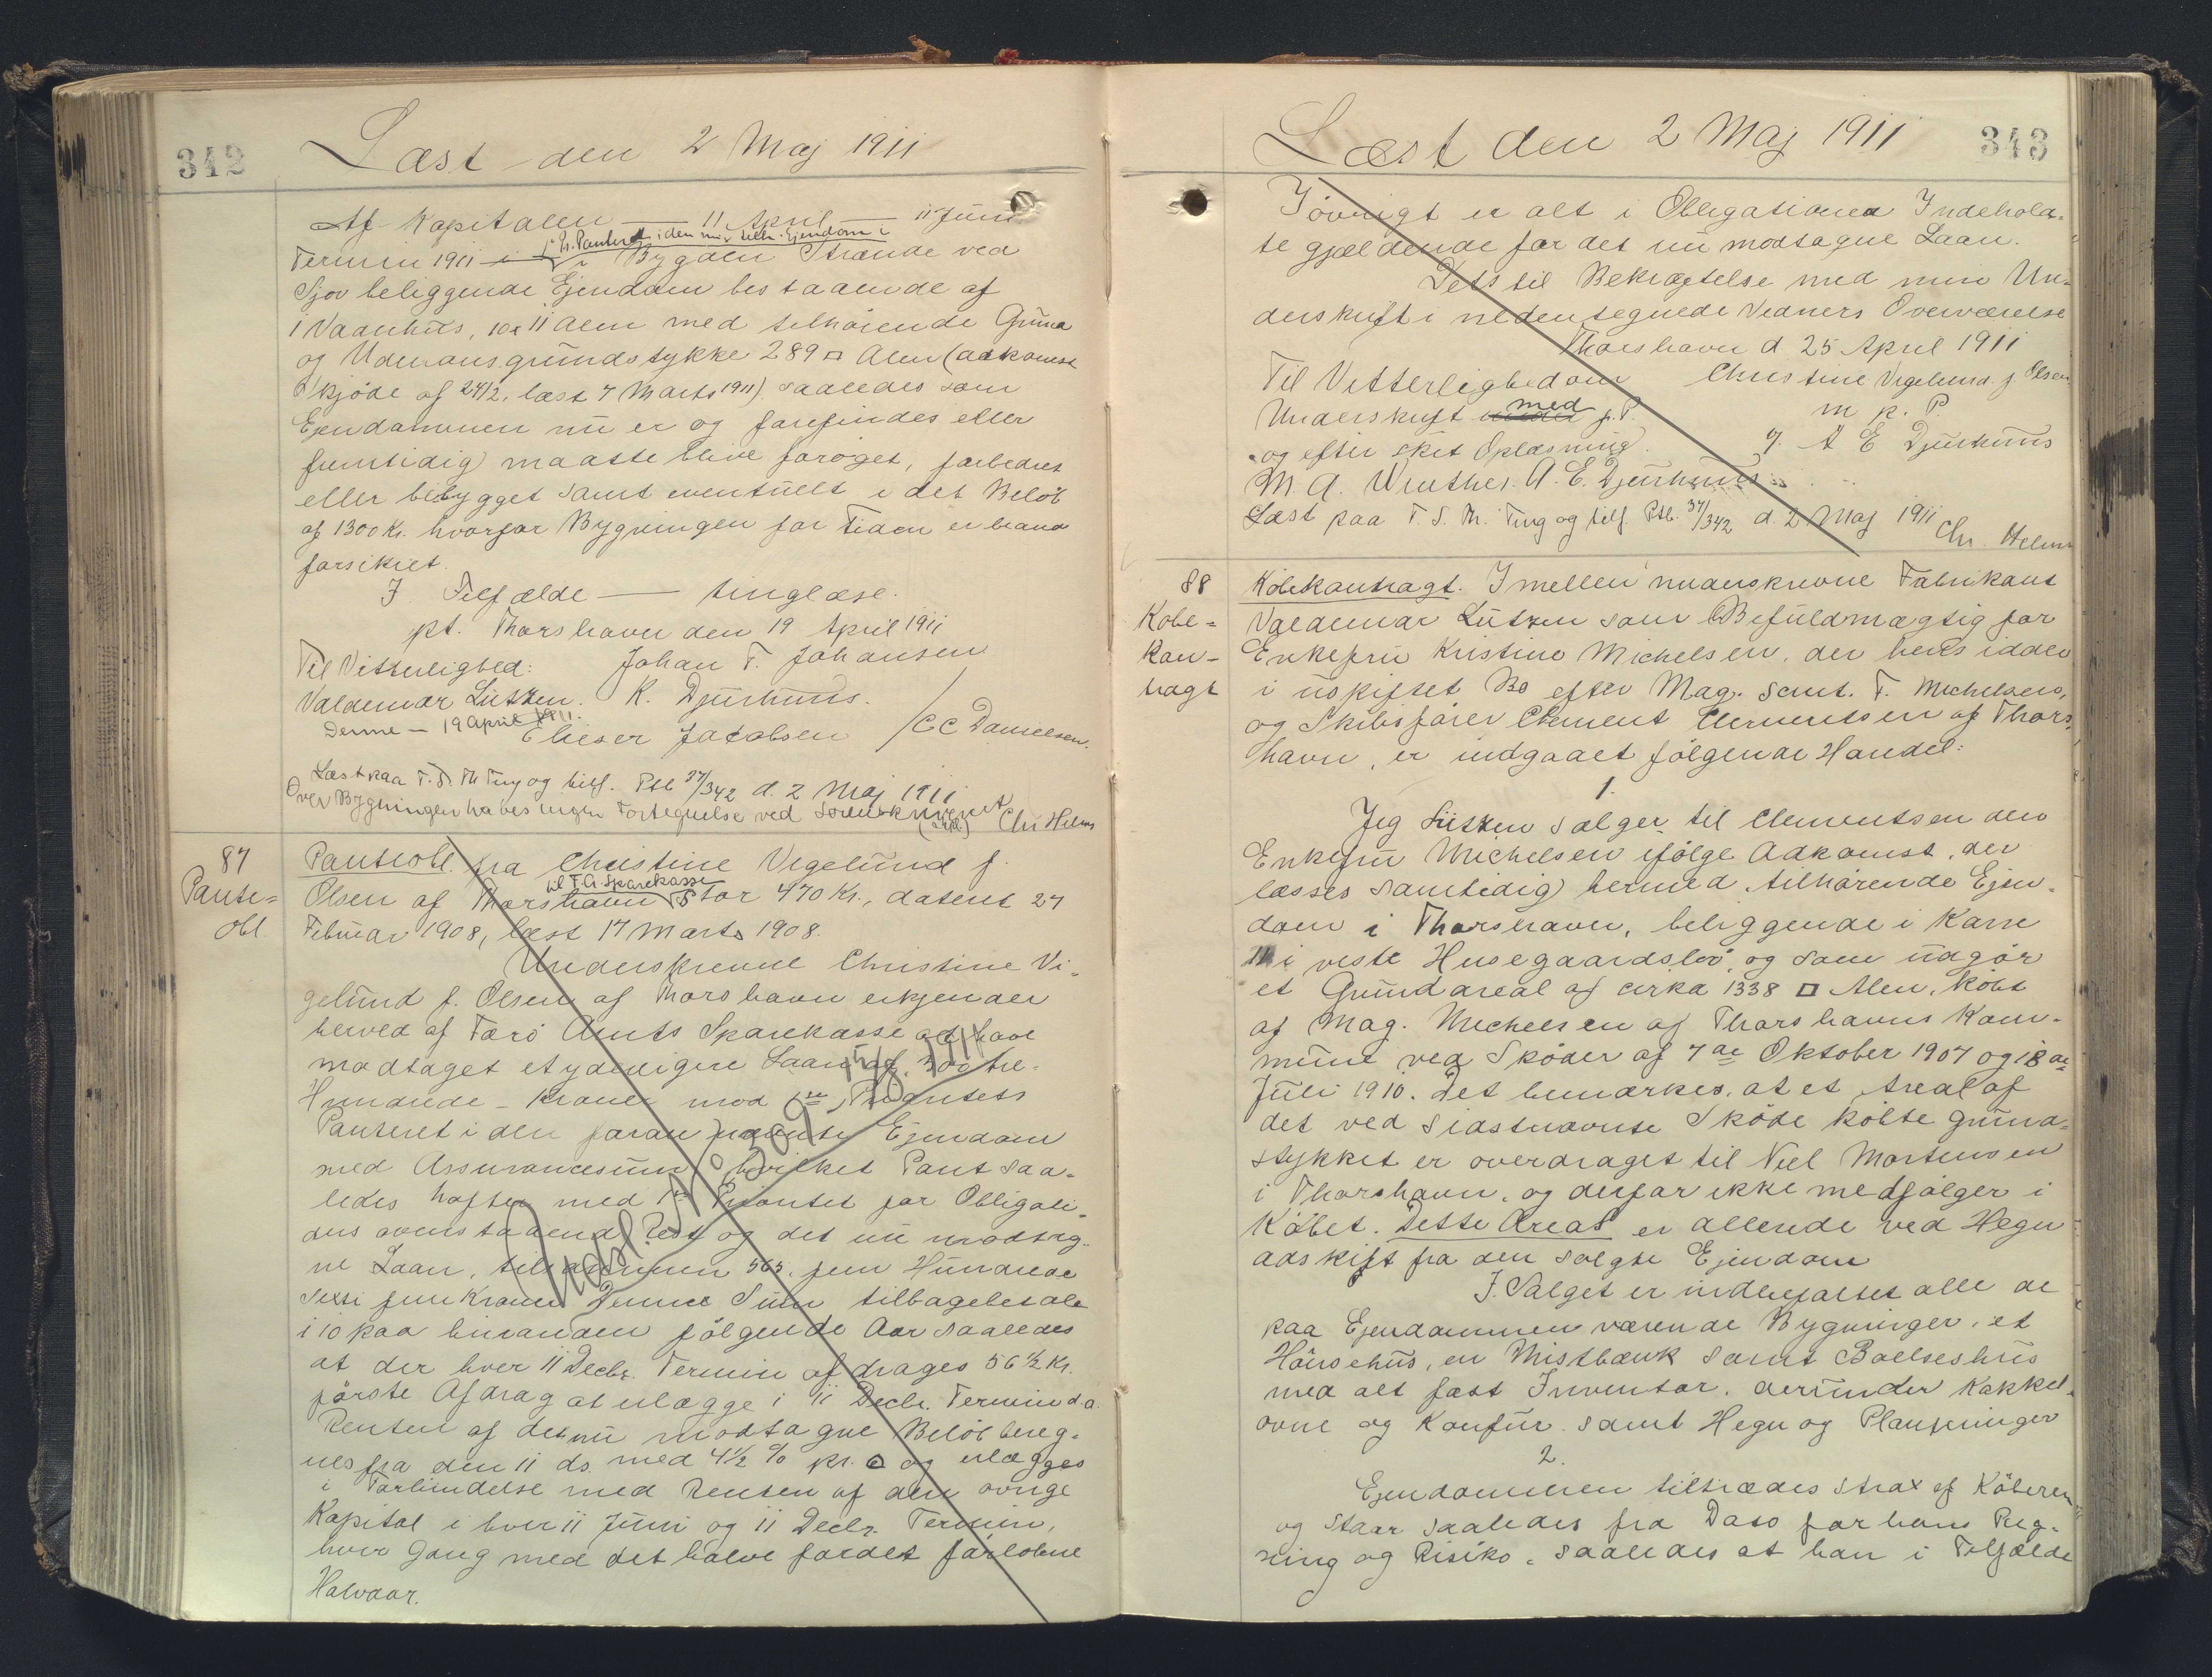 342
Læst den 2 Maj 1911
Af Kapitalen — 11 April — 11 Juni
1' Pr. Panteret i den mig tilh. Ejendom i
Termin 1911 i Bygden Strænde ved
Sjov beliggende Ejendom bestaaende af
1 Vaanhus, 10x11 Alen med tilhørende Grund
og Udenomsgrundstykke 289 □ Alen (adkomst
Skjøde af 24/2, læst 7 Marts 1911) saaledes som
Ejendommen nu er og forefindes eller
fremtidig maatte blive forøget, forbedret
eller bebygget samt eventuelt i det Beløb
af 1300 Kr. hvorfor Bygningen for Tiden er brand
forsikret.
I Tilfælde — tinglæse.
pt. Thorshavn den 19 April 1911
Til Vitterlighed: Johan F. Johansen
Valdemar Lützen. K. Djurhuus.
Denne — 19 April 1911.
Elieser Jacobsen / C C Danielsen.
Læst paa T. S. Th Ting og tilf. Ptb 37/342 d. 2 Maj 1911
Over Bygningen haves ingen Fortegnelse ved Sorenskriveriet
Chr Helms
87
Pante=
obl.
Panteobl. fra Christine Vigelund f.
til F. A. Sparekasse
Olsen af Thorshavn stor 470 Kr., dateret 27
Februar 1908, læst 17 Marts 1908.
Underskrevne Christine Vi-
gelund f. Olsen af Thorshavn erkjender
herved af Færø Amts Sparekasse at have
modtaget et yderligere Laan af 300 tre-
Hundrede - Kroner mod 1ste Prioritets
Panteret i den foran nævnte Ejendom
med Assurancesum, hvilket Pant saa-
ledes hæfter med 1ste Prioritet for Obligati-
ons ovenstaaende Rest og det nu modtag-
ne Laan, tilsammen 565, fem Hundrede
sexti fem Kroner Denne Sum tilbagebetales
i 10 paa hinanden følgende Aar saaledes
at der hver 11 Decbr. Termin afdrages 56 1/2 Kr.
første Afdrag at erlægge i 11 Decbr. Termin d.a.
Renten af det nu modtagne Beløb bereg-
nes fra den 11 ds. med 4 1/2 % pr. a og erlægges
i Forbindelse med Renten af den øvrige
Kapital i hver 11 Juni og 11 Decbr. Termin,
hver Gang med det halve for det forløbne
Halvaar.
Udsl.
343
Læst den 2 Maj 1911
Iøvrigt er alt i Obligationen Indehold-
te gjældende for det nu modtagne Laan.
Dets til Bekræftelse med min Un-
derskrift i nedentegnede Vidners Overværelse
Thorshavn d 25 April 1911
Til Vitterlighed om Christine Vigelund f. Olsen
Underskrift med f. P. m p. P.
og efter sket Oplæsning. A E Djurhuus
M. A. Winther. A. E. Djurhuus
Læst paa T. S. Th. Ting og tilf. Ptb. 37/342 d. 2 Maj 1911
Chr. Helms
88
Købe=
kon-
tragt
Købekontragt. Imellem undenskrevne Fabrikant
Valdemar Lützen som Befuldmægtig for
Enkefru Kristine Michelsen, der henssidder
i uskiftet Bo efter Mag. Saml. F. Michelsen,
og Skibsfører Clement Clementsen af Thors-
havn, er indgaaet følgende Handel:
1.
Jeg Lützen sælger til Clementsen den
Enkefru Michelsen ifølge Adkomst, der
læses samtidig hermed, tilhørende Ejen-
dom i Thorshavn, beliggende i Karre
III i veste Husegaardsbø, og som udgør
et Grundareal af cirka 1338 □ Alen, købt
af Mag. Michelsen af Thorshavns Kom-
mune ved Skøder af 7de Oktober 1907 og 18de
Juli 1910. Det bemærkes, at et Areal af
det ved sidstnævnte Skøde købte Grund-
stykket er overdraget til Niel Mortensen
i Thorshavn, og derfor ikke medfølger i
Købet. Dette Areal er allerede ved Hegn
adskift fra den solgte Ejendom
I Salget er indbefattet alle de
paa Ejendommen værende Bygninger, et
Hønsehus, en Mistbænk samt Baelseshus
med alt fast Inventar, derunder Kakkel-
ovne og Komfur. samt Hegn og Plantninger
2.
Ejendommen tiltrædes strax af Køberen
og staar saaledes fra Dato for hans Reg-
ning og Risiko, saaledes at han i Tilfælde